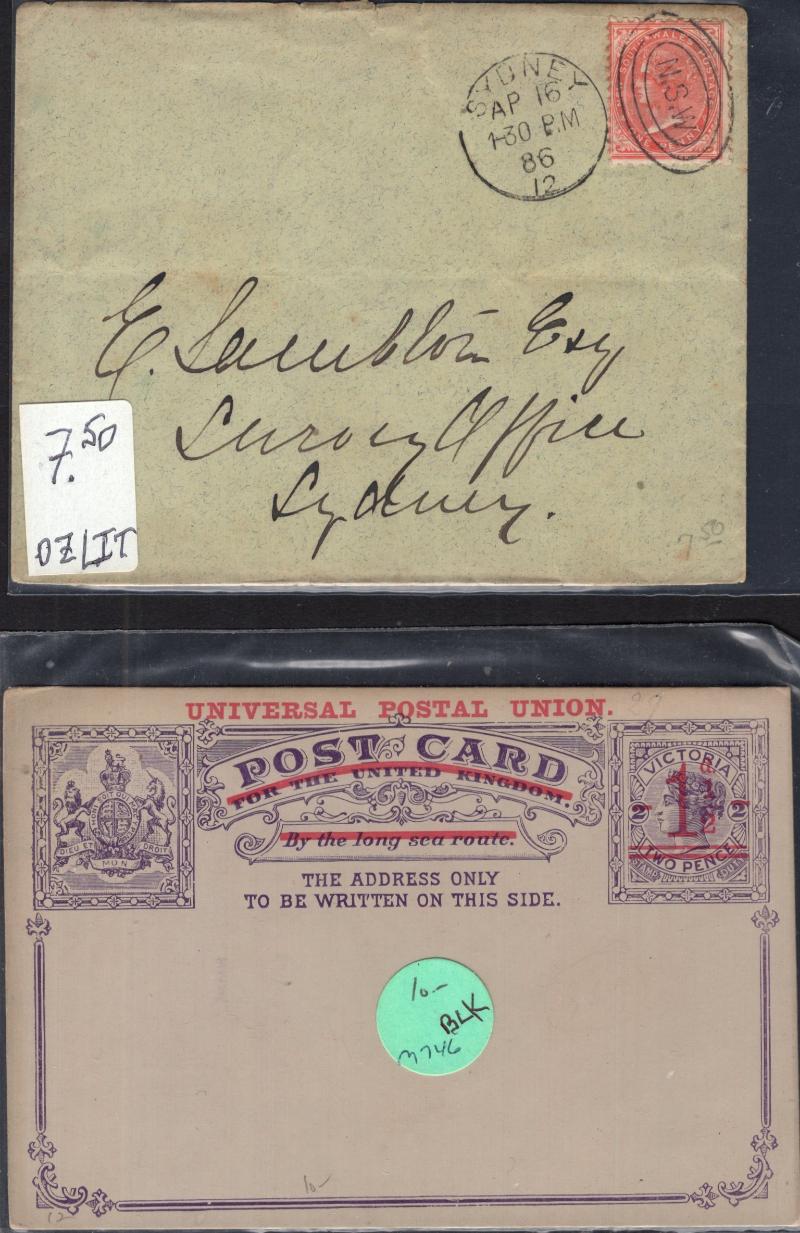 SYDNEY
AP 16
1-30 P.M
86
12
N.S.W
SOUTH WALES
E. Esq
Survey Office
Sydney.
7.50
OZ/IT
7 50
UNIVERSAL POSTAL UNION.
POST CARD
FOR THE UNITED KINGDOM.
By the long sea route.
THE ADDRESS ONLY
TO BE WRITTEN ON THIS SIDE.
DIEU ET MON DROIT
VICTORIA
2 2
TWO PENCE
10-
BLK
M746
10-
12